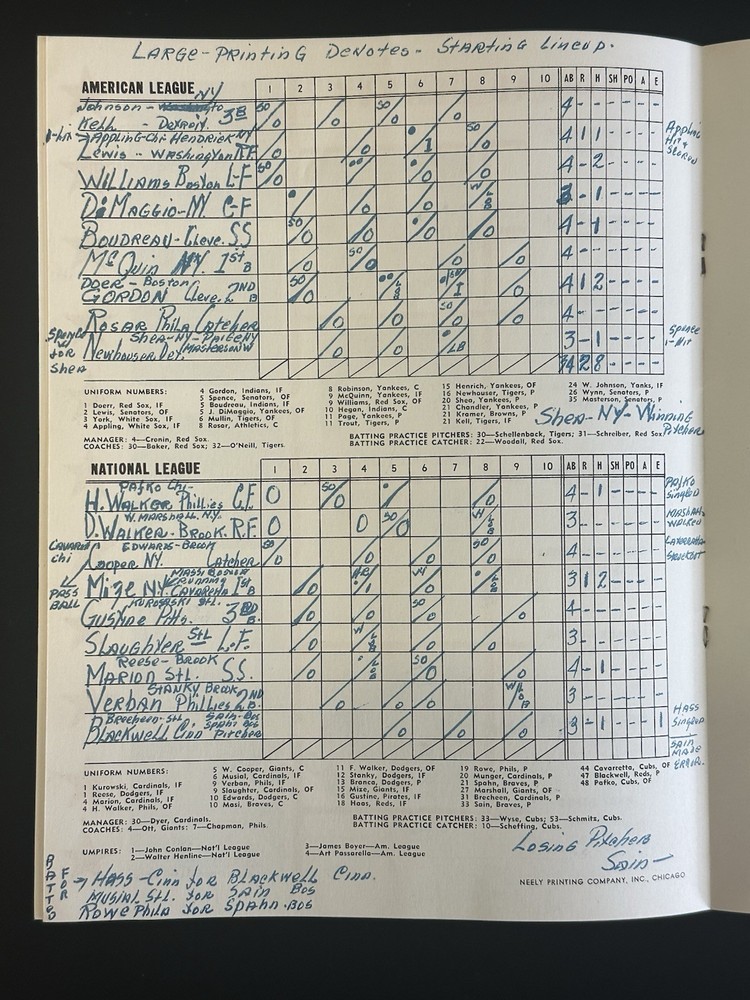 LARGE-PRINTING DENOTES- STARTING LINEUP.
AMERICAN LEAGUE NY 1 2 3 4 5 6 7 8 9 10 AB R H SH PO A E
Johnson - 3B SO SO 4 - - - - - -
Kell - Detroit.
1-hit → Appling-Chi Hendrich NY SO 4 1 1 - - - - Appling Hit & Scored
Lewis - Washington R.F.
WILLIAMS Boston L-F SO 4 - 2 - - - -
DiMAGGIO-NY C-F - 1 - - - -
BOUDREAU-Cleve. SS SO 4 - 1 - - - -
McQuin NY. 1st B SO 4 - - - - - -
Doer - Boston SO SO 4 1 2 - - - -
GORDON Cleve. 2ND B
ROSAR Phila Catcher SO 4 - - - - - -
Spence for Shea Shea-NY-Page NY 3 - 1 - - - - Spence 1-Hit
Newhouser Det. Masterson W
34 2 8 - - - -
UNIFORM NUMBERS:
1 Doerr, Red Sox, IF
2 Lewis, Senators, OF
3 York, White Sox, IF
4 Appling, White Sox, IF
4 Gordon, Indians, IF
5 Spence, Senators, OF
5 Boudreau, Indians, IF
5 J. DiMaggio, Yankees, OF
6 Mullin, Tigers, OF
8 Rosar, Athletics, C
8 Robinson, Yankees, C
9 McQuinn, Yankees, IF
9 Williams, Red Sox, OF
10 Hegan, Indians, C
11 Page, Yankees, P
11 Trout, Tigers, P
15 Henrich, Yankees, OF
16 Newhouser, Tigers, P
20 Shea, Yankees, P
21 Chandler, Yankees, P
21 Kramer, Browns, P
21 Kell, Tigers, IF
24 W. Johnson, Yanks, IF
26 Wynn, Senators, P
35 Masterson, Senators, P
Shea - NY - Winning Pitcher
MANAGER: 4—Cronin, Red Sox.
COACHES: 30—Baker, Red Sox; 32—O'Neill, Tigers.
BATTING PRACTICE PITCHERS: 30—Schellenback, Tigers; 31—Schreiber, Red Sox.
BATTING PRACTICE CATCHER: 22—Woodall, Red Sox.
NATIONAL LEAGUE 1 2 3 4 5 6 7 8 9 10 AB R H SH PO A E
Pafko Chi- SO 4 - 1 - - - - Pafko Singled
H. WALKER Phillies C.F.
W. Marshall N.Y. SO 3 - - - - - - Marshall Walked
D. WALKER-Brook. R.F.
Edwards-Brook SO SO 4 - - - - - - Cavarretta Struckout
Cooper NY. Catcher
Cavaretta Chi ↙ Pass Ball
Mize N.Y. Massi Boston Running Cavareta 1st B HR W 3 1 2 - - - -
Kurowski Stl. SO 4 - - - - - -
Gustine Pitts. 3RD B
SLAUGHTER Stl L.F. W 3 - - - - - -
Reese - Brook SO 4 - 1 - - - -
MARION Stl. S.S.
Stanky Brook 3 - - - - - -
VERBAN Phillies 2ND B.
Brecheen-Stl Sain-Bos Spahn Bos 3 - 1 - - - 1 Hass Singled
BLACKWELL Cinn Pitcher
Sain Made Error.
UNIFORM NUMBERS:
1 Kurowski, Cardinals, IF
1 Reese, Dodgers, IF
4 Marion, Cardinals, IF
4 H. Walker, Phils, OF
5 W. Cooper, Giants, C
6 Musial, Cardinals, IF
9 Verban, Phils, IF
9 Slaughter, Cardinals, OF
10 Edwards, Dodgers, C
10 Masi, Braves, C
11 F. Walker, Dodgers, OF
12 Stanky, Dodgers, IF
13 Branca, Dodgers, P
15 Mize, Giants, IF
16 Gustine, Pirates, IF
18 Haas, Reds, IF
19 Rowe, Phils, P
20 Munger, Cardinals, P
21 Spahn, Braves, P
27 Marshall, Giants, OF
31 Brecheen, Cardinals, P
33 Sain, Braves, P
44 Cavarretta, Cubs, OF
47 Blackwell, Reds, P
48 Pafko, Cubs, OF
MANAGER: 30—Dyer, Cardinals.
COACHES: 4—Ott, Giants; 7—Chapman, Phils.
BATTING PRACTICE PITCHERS: 33—Wyse, Cubs; 53—Schmitz, Cubs.
BATTING PRACTICE CATCHER: 10—Scheffing, Cubs.
UMPIRES: 1—John Conlan—Nat'l League
2—Walter Henline—Nat'l League
3—James Boyer—Am. League
4—Art Passarella—Am. League
Losing Pitcher
Sain-
NEELY PRINTING COMPANY, INC., CHICAGO
BATTED FOR → HASS-Cinn for Blackwell Cinn.
Musial Stl. for Sain Bos
Rowe Phila for Spahn. Bos